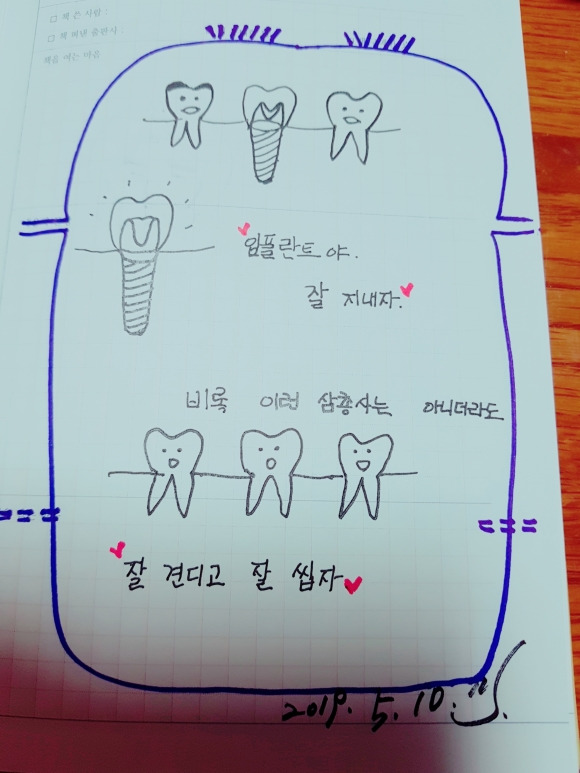 □ 책 쓴 사람 :
□ 책 펴낸 출판사
책을 여는 마음
임플란트야.
잘 지내자.
비록 이런 삼총사는 아니더라도
잘 견디고 잘 씹자
2019. 5. 10.